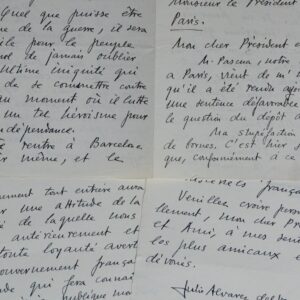 Quel que puisse être
de la guerre, il sera
ile pour le peuple
nol de jamais oublier
ultime iniquité qui
de se commettre contre
au moment où il lutte
un tel héroïsme pour
dépendance.
rentre à Barcelone
même, et le
Monsieur le Président
Paris.
Mon cher Président e
M. Pascua, notre
a Paris, vient de m'
qu'il a été rendu aujo
une sentence défavorable
la question du dépôt d
Ma stupéfaction
de bornes. C'est hier s
que, conformément à ce
ement tout entier aura
r une attitude de la
de laquelle nous
antérieurement et
toute loyauté avert
ouvernement françai
qui fera connaî
publique mon
français
Veuillez croire person
llement, mon cher Pré
et Ami, à mes sent
les plus amicaux e
dévoués.
Julio Alvarez del